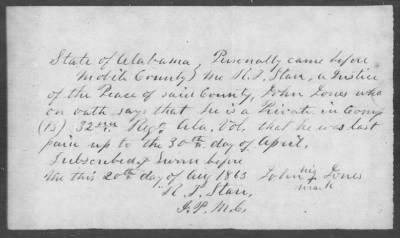 State of Alabama, Personally came before
Mobile County } me R. T. Starr, a Justice
of the Peace of said County, John Jones who
on oath says that he is a Private in Comp
(B) 32nd Reg. Ala. Vols. that he was last
paid up to the 30th day of April.
Subscribed & Sworn before
me this 20th day of Aug 1863 John his + mark Jones
R. T. Starr,
J.P.M.C.